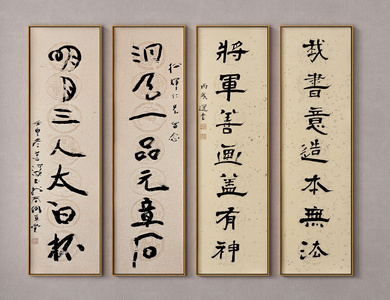 我書意造本無法
將軍善画蓋有神
丙戌
洞天一品元章石
明月三人太白杯